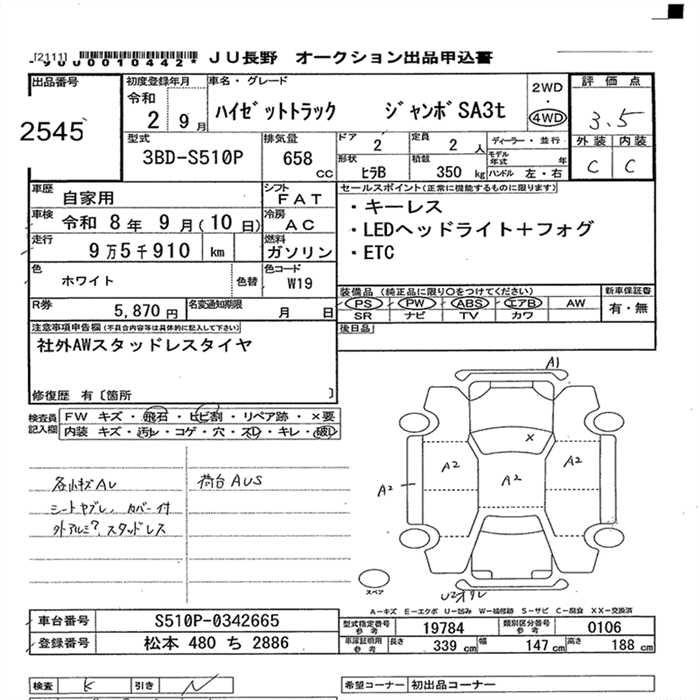 [2111]
*9000010442* JU長野 オークション出品申込書
出品番号
2545
初度登録年月
令和
2 9月
車名・グレード
ハイゼットトラック ジャンボSA3t
2WD
・
4WD
評価点
3.5
外装 内装
C C
型式
3BD-S510P
排気量
658 cc
ドア
2
定員
2 人
ディーラー・並行
モデル年式 年
形状
ヒラB
積載
350 kg
ハンドル 左・右
車歴
自家用
シフト
FAT
車検
令和 8年 9月(10日)
冷房
AC
走行
9万5千910 km
燃料
ガソリン
色
ホワイト
色替
色コード
W19
R券
5,870円
名変通知期限
月 日
セールスポイント(正常に機能するものに限ります)
・キーレス
・LEDヘッドライト+フォグ
・ETC
装備品 (純正品に限り○をつけてください)
PS PW ABS エアB AW
SR ナビ TV カワ
新車保証書
有・無
後日品
注意事項申告欄(不具合内容等は具体的に記入して下さい)
社外AWスタッドレスタイヤ
修復歴 有〔箇所 〕
検査員記入欄
FW キズ・飛石・ヒビ割・リペア跡・×要
内装 キズ・汚レ・コゲ・穴・スレ・キレ・破レ
各小キズAU 荷台AUS
シートヤブレ、カバー付
外アルミ?、スタッドレス
A1
×
A2 A2 A2
A2
U2オリレ
スペア
A-キズ E-エクボ U-凹み W-補修跡 S-サビ C-腐食 XX-交換済
車台番号
S510P-0342665
登録番号
松本 480 ち 2886
型式指定番号参考
19784
類別区分番号参考
0106
車庫証明用参考
長さ 339 cm 幅 147 cm 高さ 188 cm
検査
引き
希望コーナー 初出品コーナー